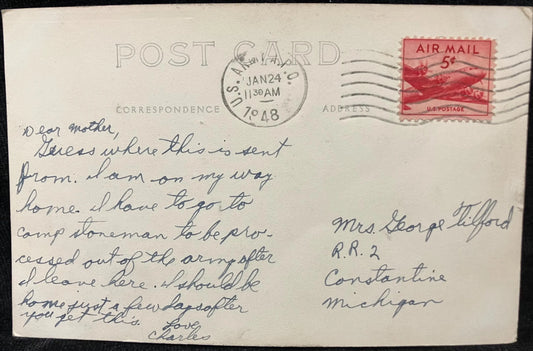 POST CARD
CORRESPONDENCE
ADDRESS
U.S. ARMY A.P.O.
JAN 24
11 30 AM
1948
AIR MAIL
5¢
U.S. POSTAGE
Dear Mother,
Guess where this is sent
from. I am on my way
home. I have to go to
Camp Stoneman to be pro-
cessed out of the army after
I leave here. I should be
home just a few days after
you get this.
Love
Charles
Mrs. George Tilford
R.R. 2
Constantine
Michigan